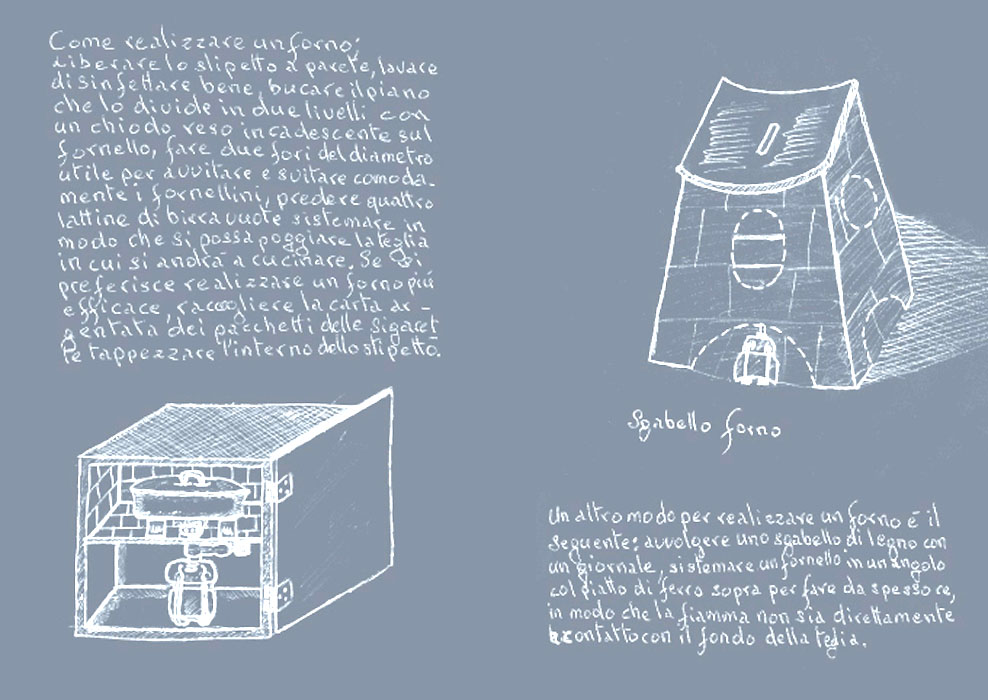 Come realizzare un forno:
Liberare lo stipetto a parete, lavare
disinfettare bene, bucare il piano
che lo divide in due livelli con
un chiodo reso incadescente sul
fornello, fare due fori del diametro
utile per avvitare e svitare comoda-
mente i fornellini, predere quattro
lattine di birra vuote sistemare in
modo che si possa poggiare la teglia
in cui si andrà a cucinare. Se si
preferisce realizzare un forno più
efficace, raccogliere la carta ar-
gentata dei pacchetti delle sigaret
te tappezzare l'interno dello stipetto.
Sgabello forno
Un altro modo per realizzare un forno è il
seguente: avvolgere uno sgabello di legno con
un giornale, sistemare un fornello in un angolo
col piatto di ferro sopra per fare da spessore,
in modo che la fiamma non sia direttamente
contatto con il fondo della teglia.